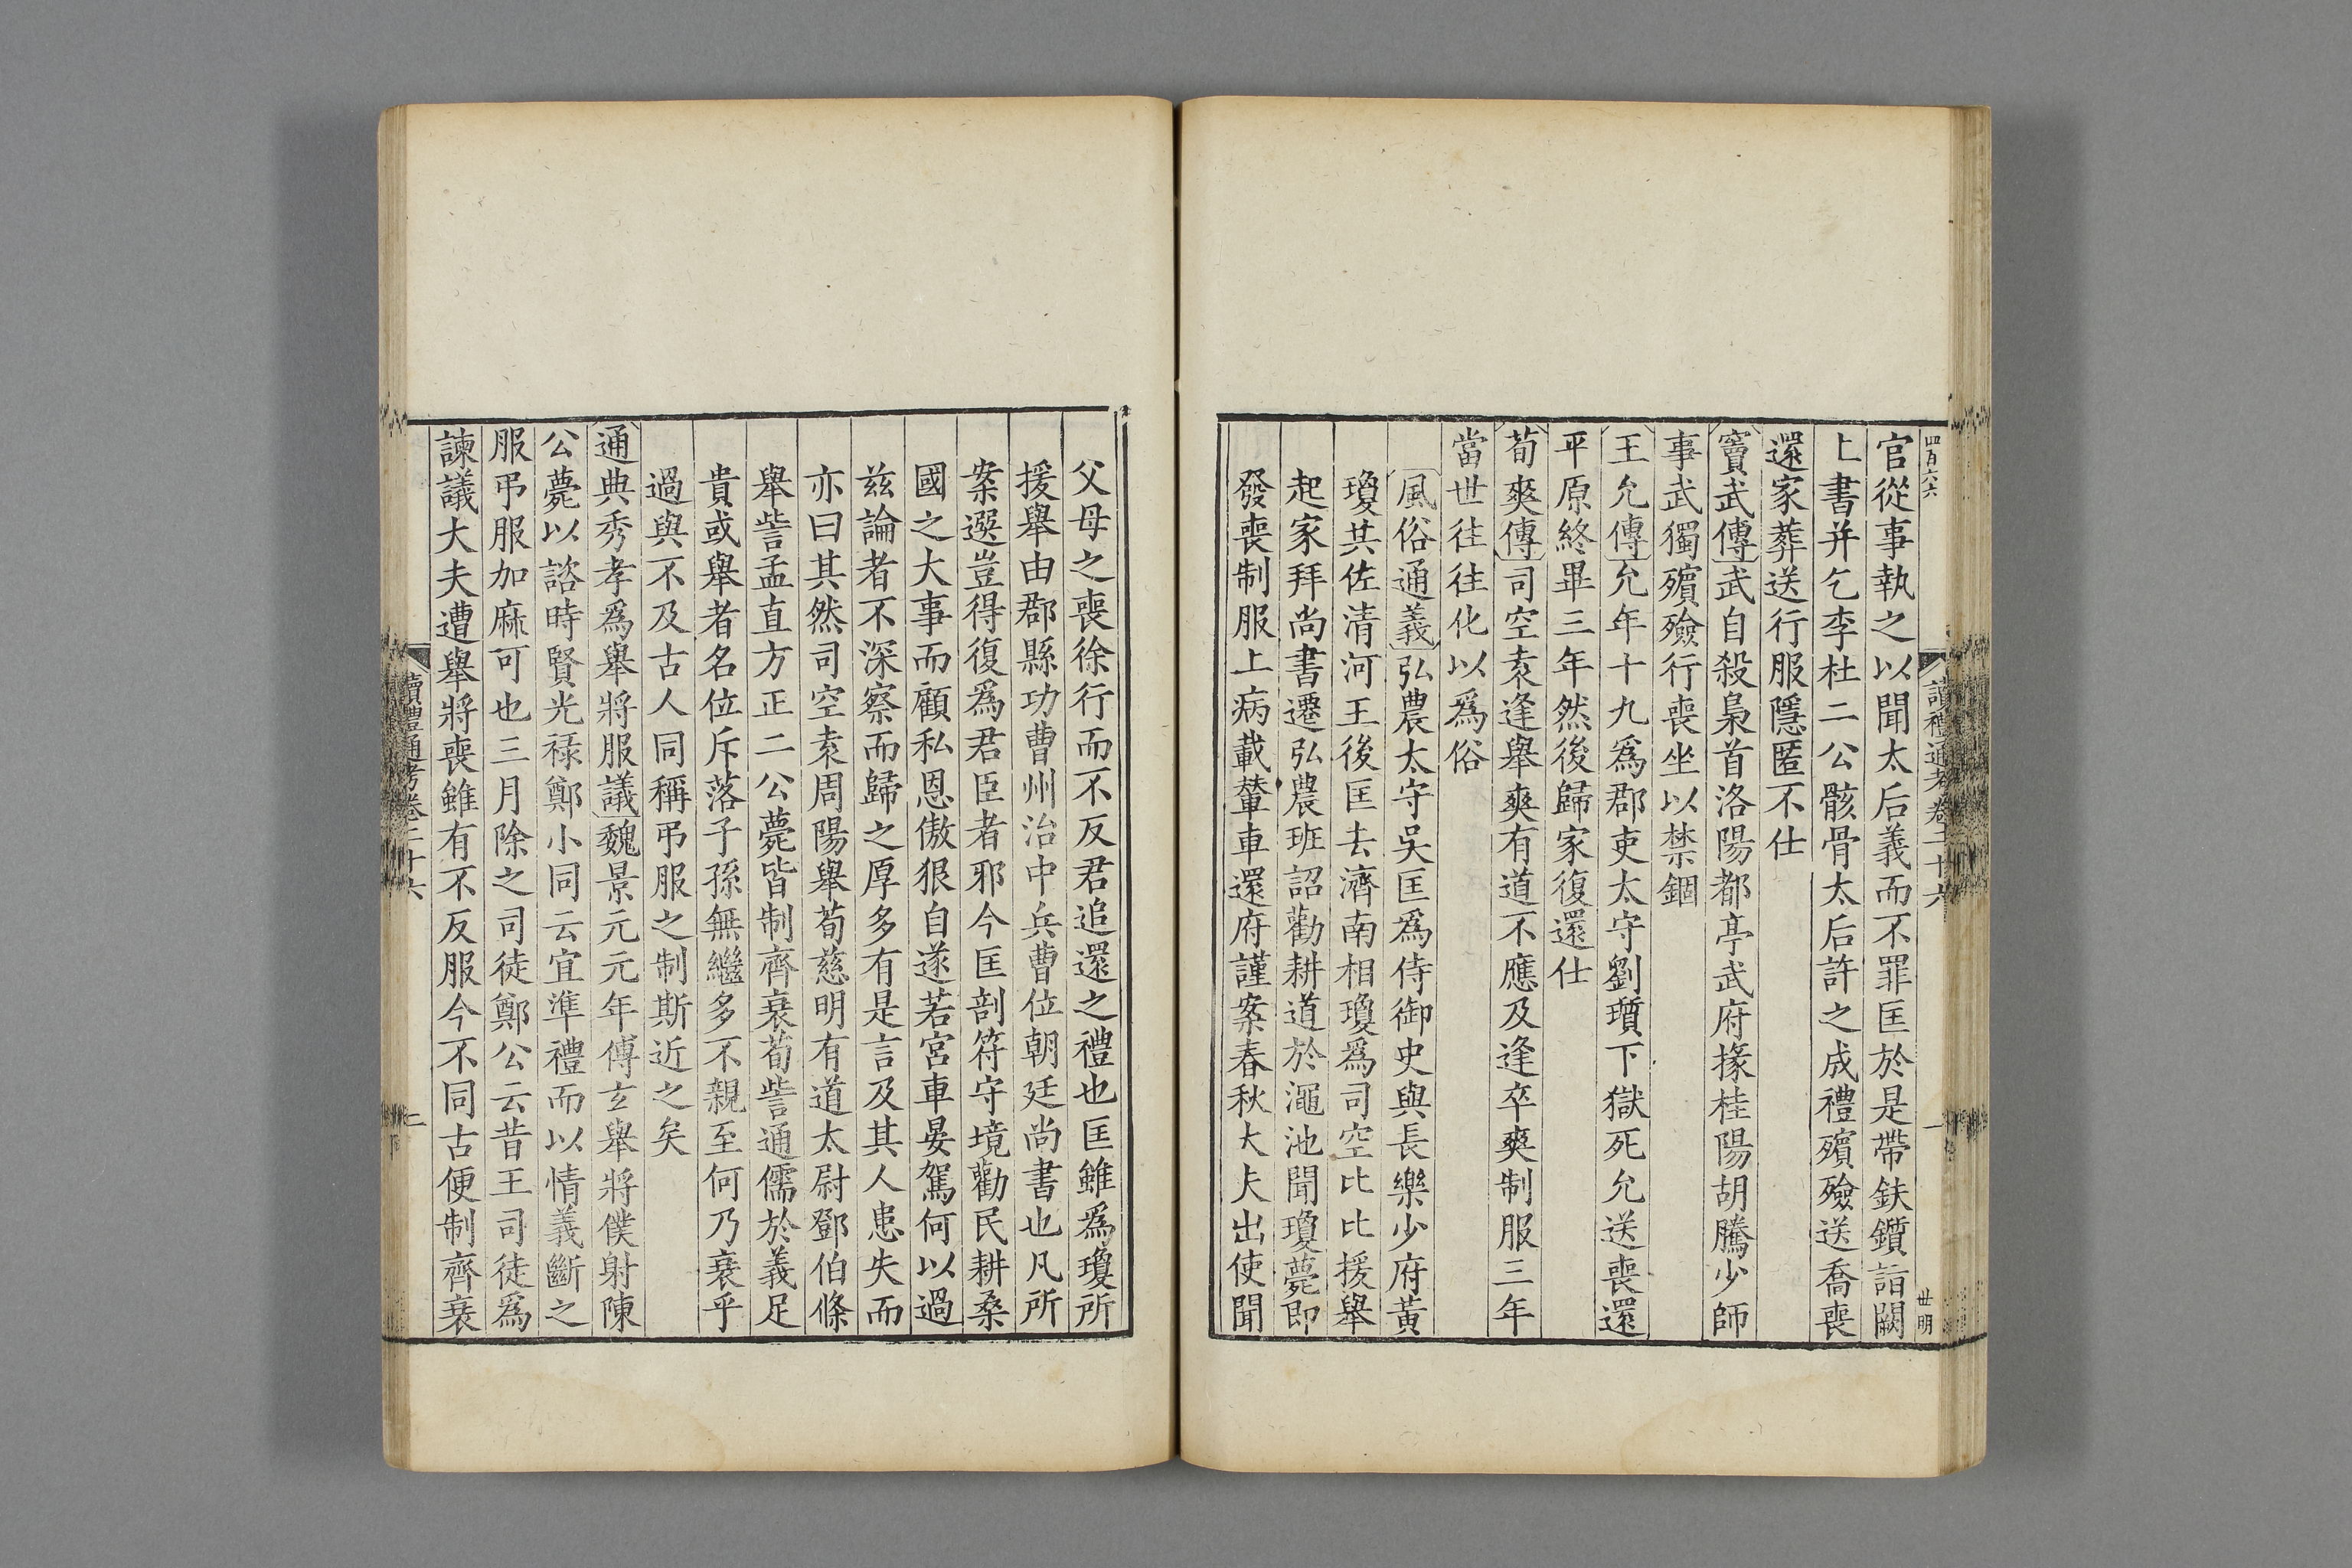 四百六六
讀禮通考卷二十六
一
世明
官從事執之以聞太后義而不罪匡於是帶鈇鑕詣闕
上書并乞李杜二公骸骨太后許之成禮殯殮送喬喪
還家葬送行服隱匿不仕
竇武傳武自殺梟首洛陽都亭武府掾桂陽胡騰少師
事武獨殯殮行喪坐以禁錮
王允傳允年十九爲郡吏太守劉瓆下獄死允送喪還
平原終畢三年然後歸家復還仕
荀爽傳司空袁逢舉爽有道不應及逢卒爽制服三年
當世往往化以爲俗
風俗通義弘農太守吳匡爲侍御史與長樂少府黃
瓊共佐清河王後匡去濟南相瓊爲司空比比援舉
起家拜尚書遷弘農班詔勸耕道於澠池聞瓊薨即
發喪制服上病載輦車還府謹案春秋大夫出使聞
父母之喪徐行而不反君追還之禮也匡雖爲瓊所
援舉由郡縣功曹州治中兵曹位朝廷尚書也凡所
案選豈得復爲君臣者邪今匡剖符守境勸民耕桑
國之大事而顧私恩傲狠自遂若宮車晏駕何以過
茲論者不深察而歸之厚多有是言及其人患失而
亦曰其然司空袁周陽舉荀慈明有道太尉鄧伯條
舉訾孟直方正二公薨皆制齊衰荀訾通儒於義足
貴或舉者名位斥落子孫無繼多不親至何乃衰乎
過與不及古人同稱弔服之制斯近之矣
通典秀孝爲舉將服議魏景元元年傅玄舉將僕射陳
公薨以諮時賢光祿鄭小同云宜準禮而以情義斷之
服弔服加麻可也三月除之司徒鄭公云昔王司徒爲
諫議大夫遭舉將喪雖有不反服今不同古便制齊衰
讀禮通考卷二十六
二